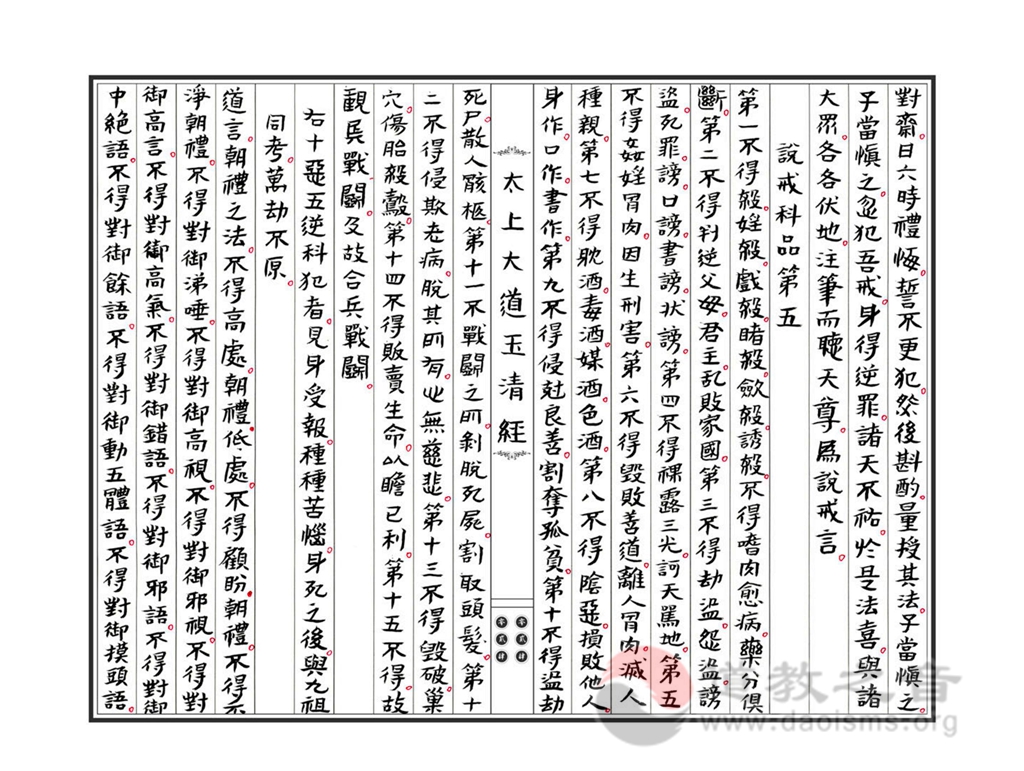 對齋日六時禮悔誓不更犯然後斟酌量授其法子當慎之
子當慎之忽犯吾戒身得逆罪諸天不祐於是法喜與諸
大眾各各伏地注筆而聽天尊為說戒言
說戒科品第五
第一不得殺婬殺戲殺睹殺歛殺誘殺不得嗜肉愈病藥分俱
斷第二不得刋逆父母君主乱敗家國第三不得劫盜怨盜謗
盜死罪謗口謗書謗状謗第四不得裸露三光訶天罵地第五
不得姦婬肙肉因生刑害第六不得毀敗善道離人肙肉滅人
種親第七不得躭酒毒酒媒酒色酒第八不得陰惡損敗他人
身作口作書作第九不得侵尅良善割奪孤貧第十不得盜劫
太上大道玉清經
零贰肆
零贰肆
死尸散人骸柩第十一不戰鬬之所剝脫死屍割取頭髮第十
二不得侵欺老病脫其所有心無慈悲第十三不得毀破巢
穴傷胎殺鷇第十四不得販賣生命以瞻己利第十五不得故
觀兵戰鬬及故合兵戰鬬
右十惡五逆科犯者見身受報種種苦惱身死之後與九祖
同考萬劫不原
道言朝禮之法不得高處朝禮低處不得顧盼朝禮不得示
淨朝禮不得對御涕唾不得對御高視不得對御邪視不得對
御高言不得對御高氣不得對御錯語不得對御邪語不得對御
中絕語不得對御餘語不得對御動五體語不得對御摸頭語
道教之音
www.daoisms.org